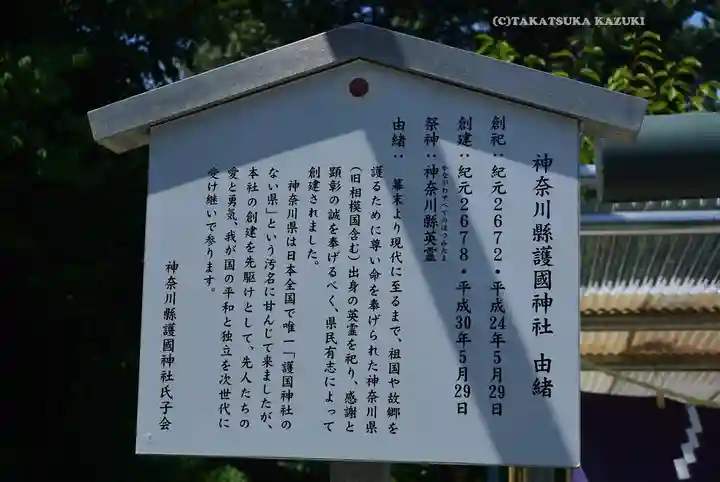 (C)TAKATSUKA KAZUKI
神奈川縣護國神社 由緒
創祀：紀元2672・平成24年5月29日
創建：紀元2678・平成30年5月29日
祭神：神奈川縣英霊
由緒： 幕末より現代に至るまで、祖国や故郷を
護るために尊い命を奉げられた神奈川県
（旧相模国含む）出身の英霊を祀り、感謝と
顕彰の誠を奉げるべく、県民有志によって
創建されました。
神奈川県は日本全国で唯一「護国神社の
ない県」という汚名に甘んじて来ましたが、
本社の創建を先駆けとして、先人たちの
愛と勇気、我が国の平和と独立を次世代に
受け継いで参ります。
神奈川縣護國神社氏子会